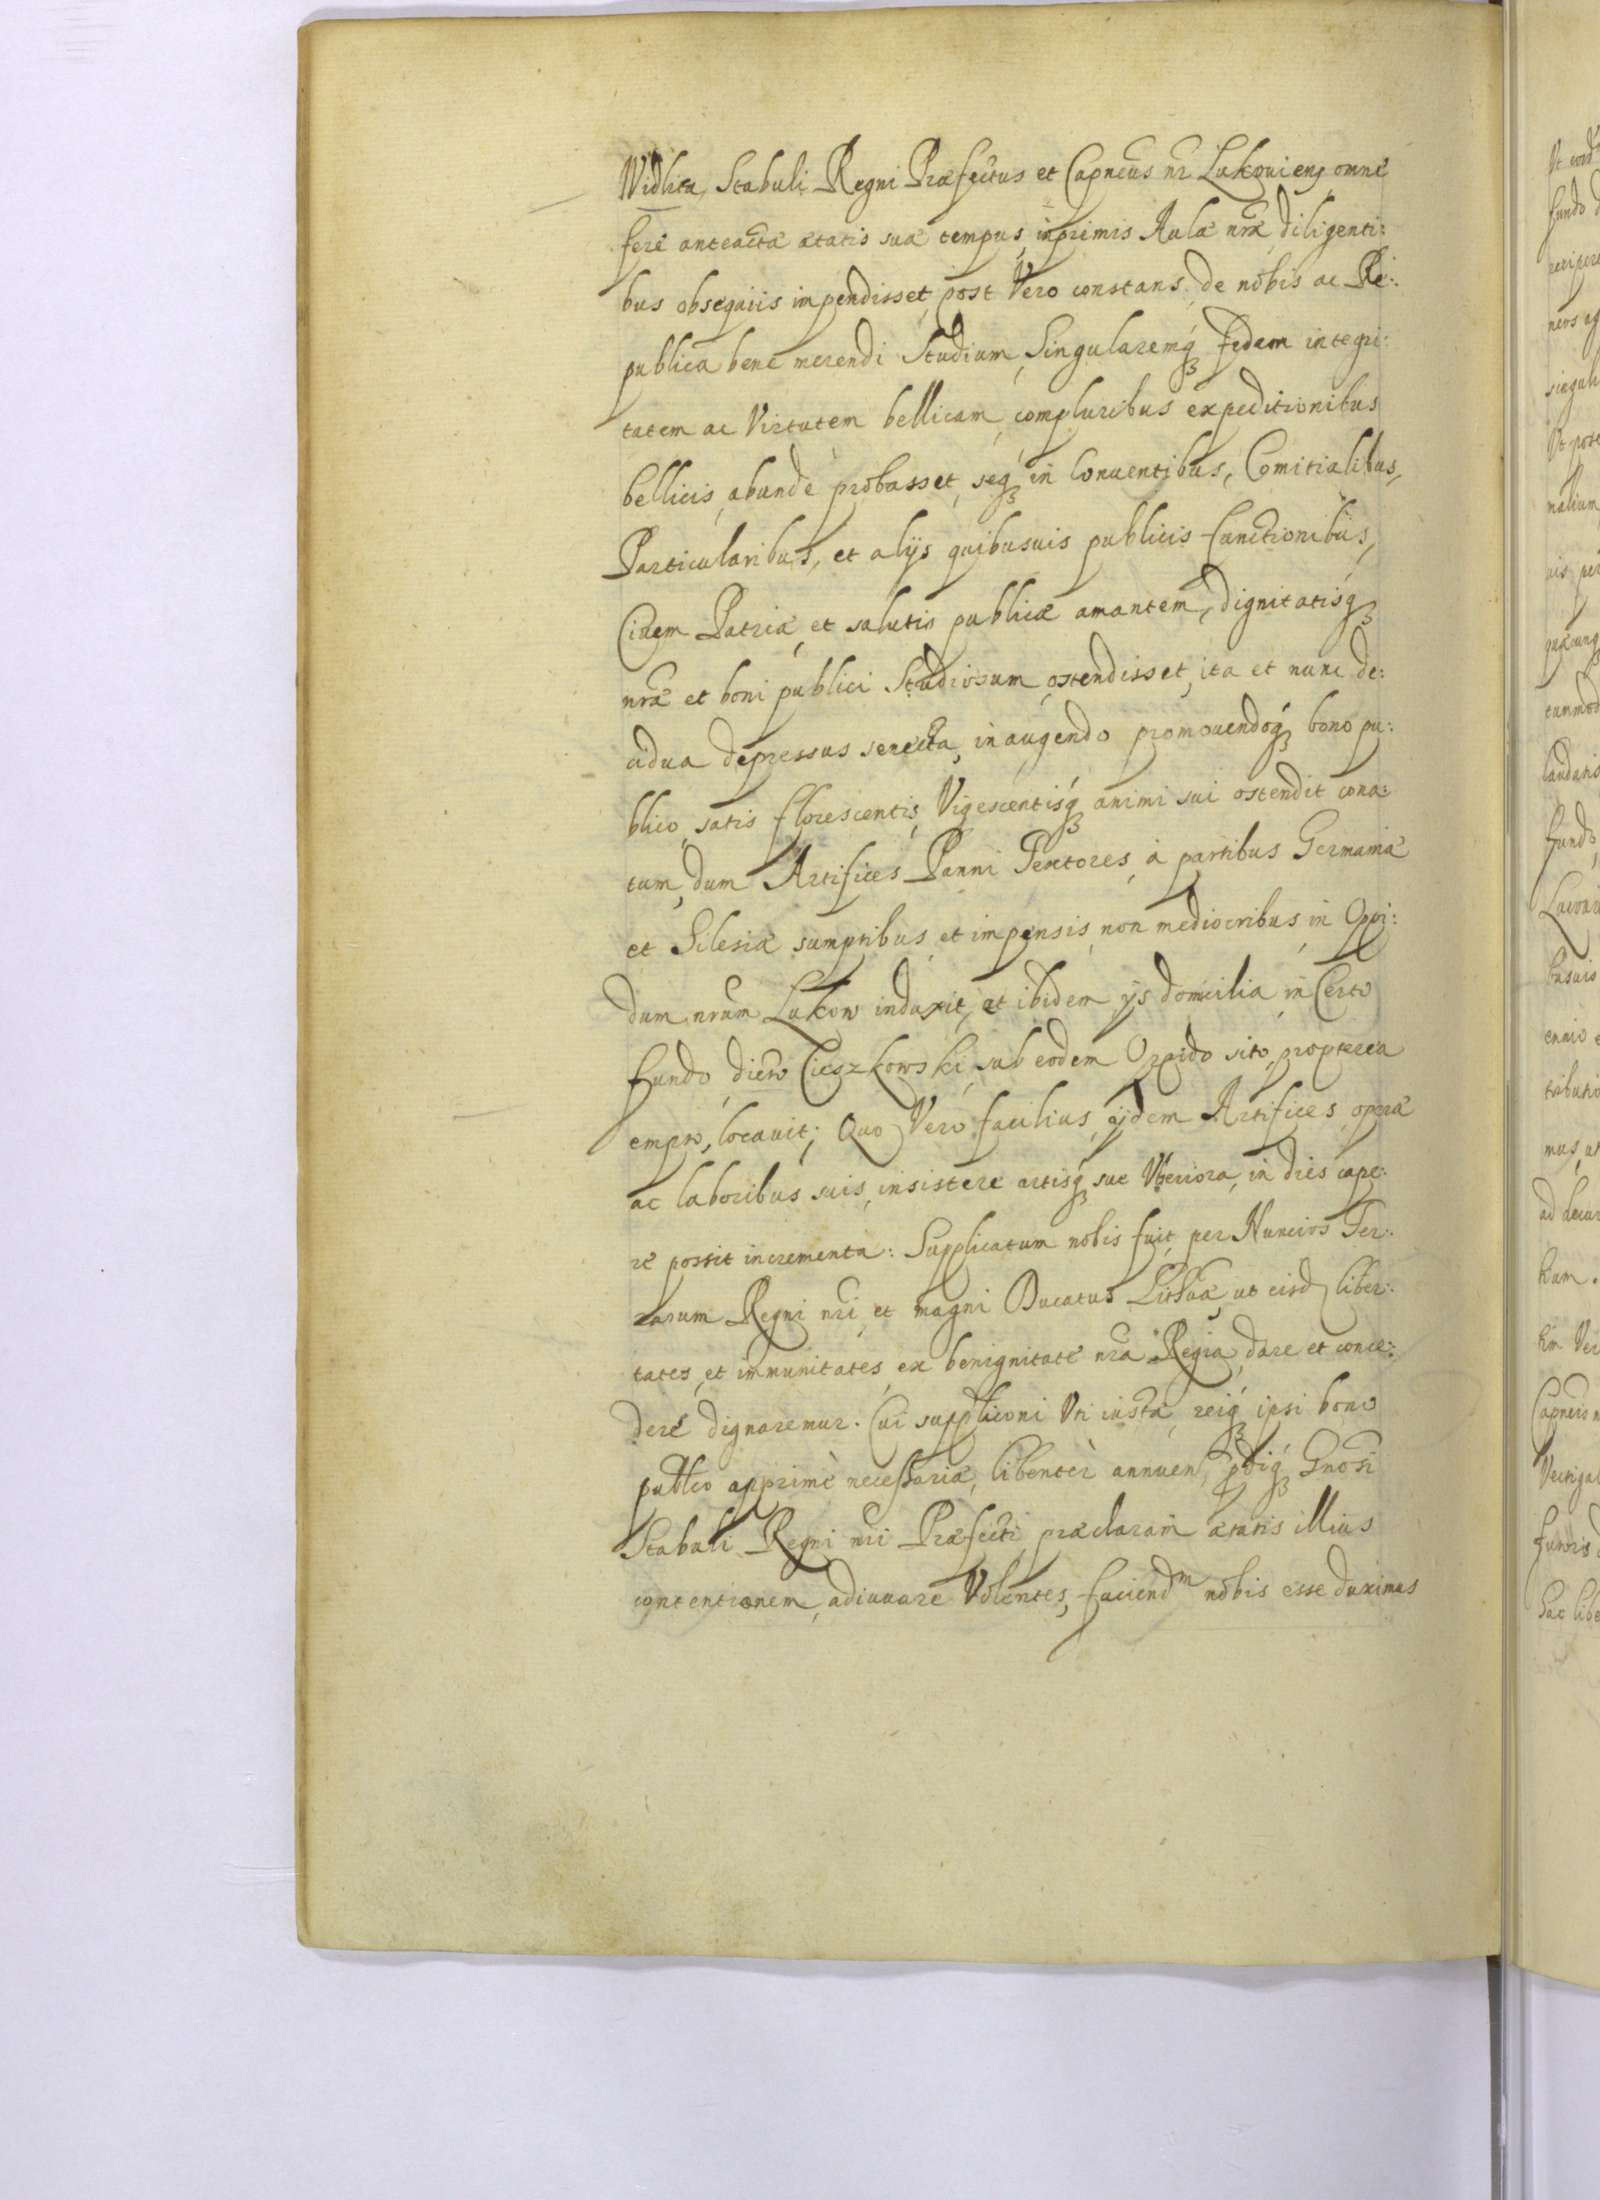 Widlica, Stabuli Regni Præfectus et Capneus nr Lukouiens omne
fere anteactæ ætatis suæ tempus, inprimis Aulæ nræ diligenti:
bus obsequiis inpendisset, post Vero constans, de nobis ac Re:
publica bene merendi Studium, Singularemq́ fidem integri:
tatem ac Virtutem bellicam, compluribus expeditionibus
bellicis, abunde probasset, seq́ in Conuentibus, Comitialibus,
Particularibus, et alijs quibusuis publicis functionibus,
Ciuem Patriæ, et salutis publicæ amantem, dignitatisq́
nræ et boni publici Studiosum, ostendisset, ita et nunc de:
cidua depressus senecta, in augendo promouendoq́ bono pu:
blico, satis florescentis, Vigescentisq́ animi sui ostendit cona:
tum, dum Artifices Panni Textores, à partibus Germaniæ
et Silesiæ sumptibus, et impensis, non mediocribus, in Oppi:
dum nrum Lukow induxit, et ibidem ijs domicilia, in Certo
fundo, dicto Cieszkowski, sub eodem Oppido sito, propterea
empto, locauit; Quo Vero facilius, ijdem Artifices, operæ
ac laboribus suis, insistere artisq́ suæ Vlteriora, in dies cape:
re possit incrementa: Supplicatum nobis fuit, per Nuncios Ter:
rarum Regni nri, et magni Ducatus Lithuæ, ut eisd liber:
tates, et immunitates, ex benignitate nra Regia, dare et conce:
dere dignaremur. Cui supplicōni Vti iustæ, reiq́ ipsi bono
publico apprimè necessariæ, libentèr annuen, pdiq́ Gnosi
Stabuli Regni nri Præfecti, præclaram ætatis illius
contentionem, adiuuare Volentes, faciendm nobis esse duximus